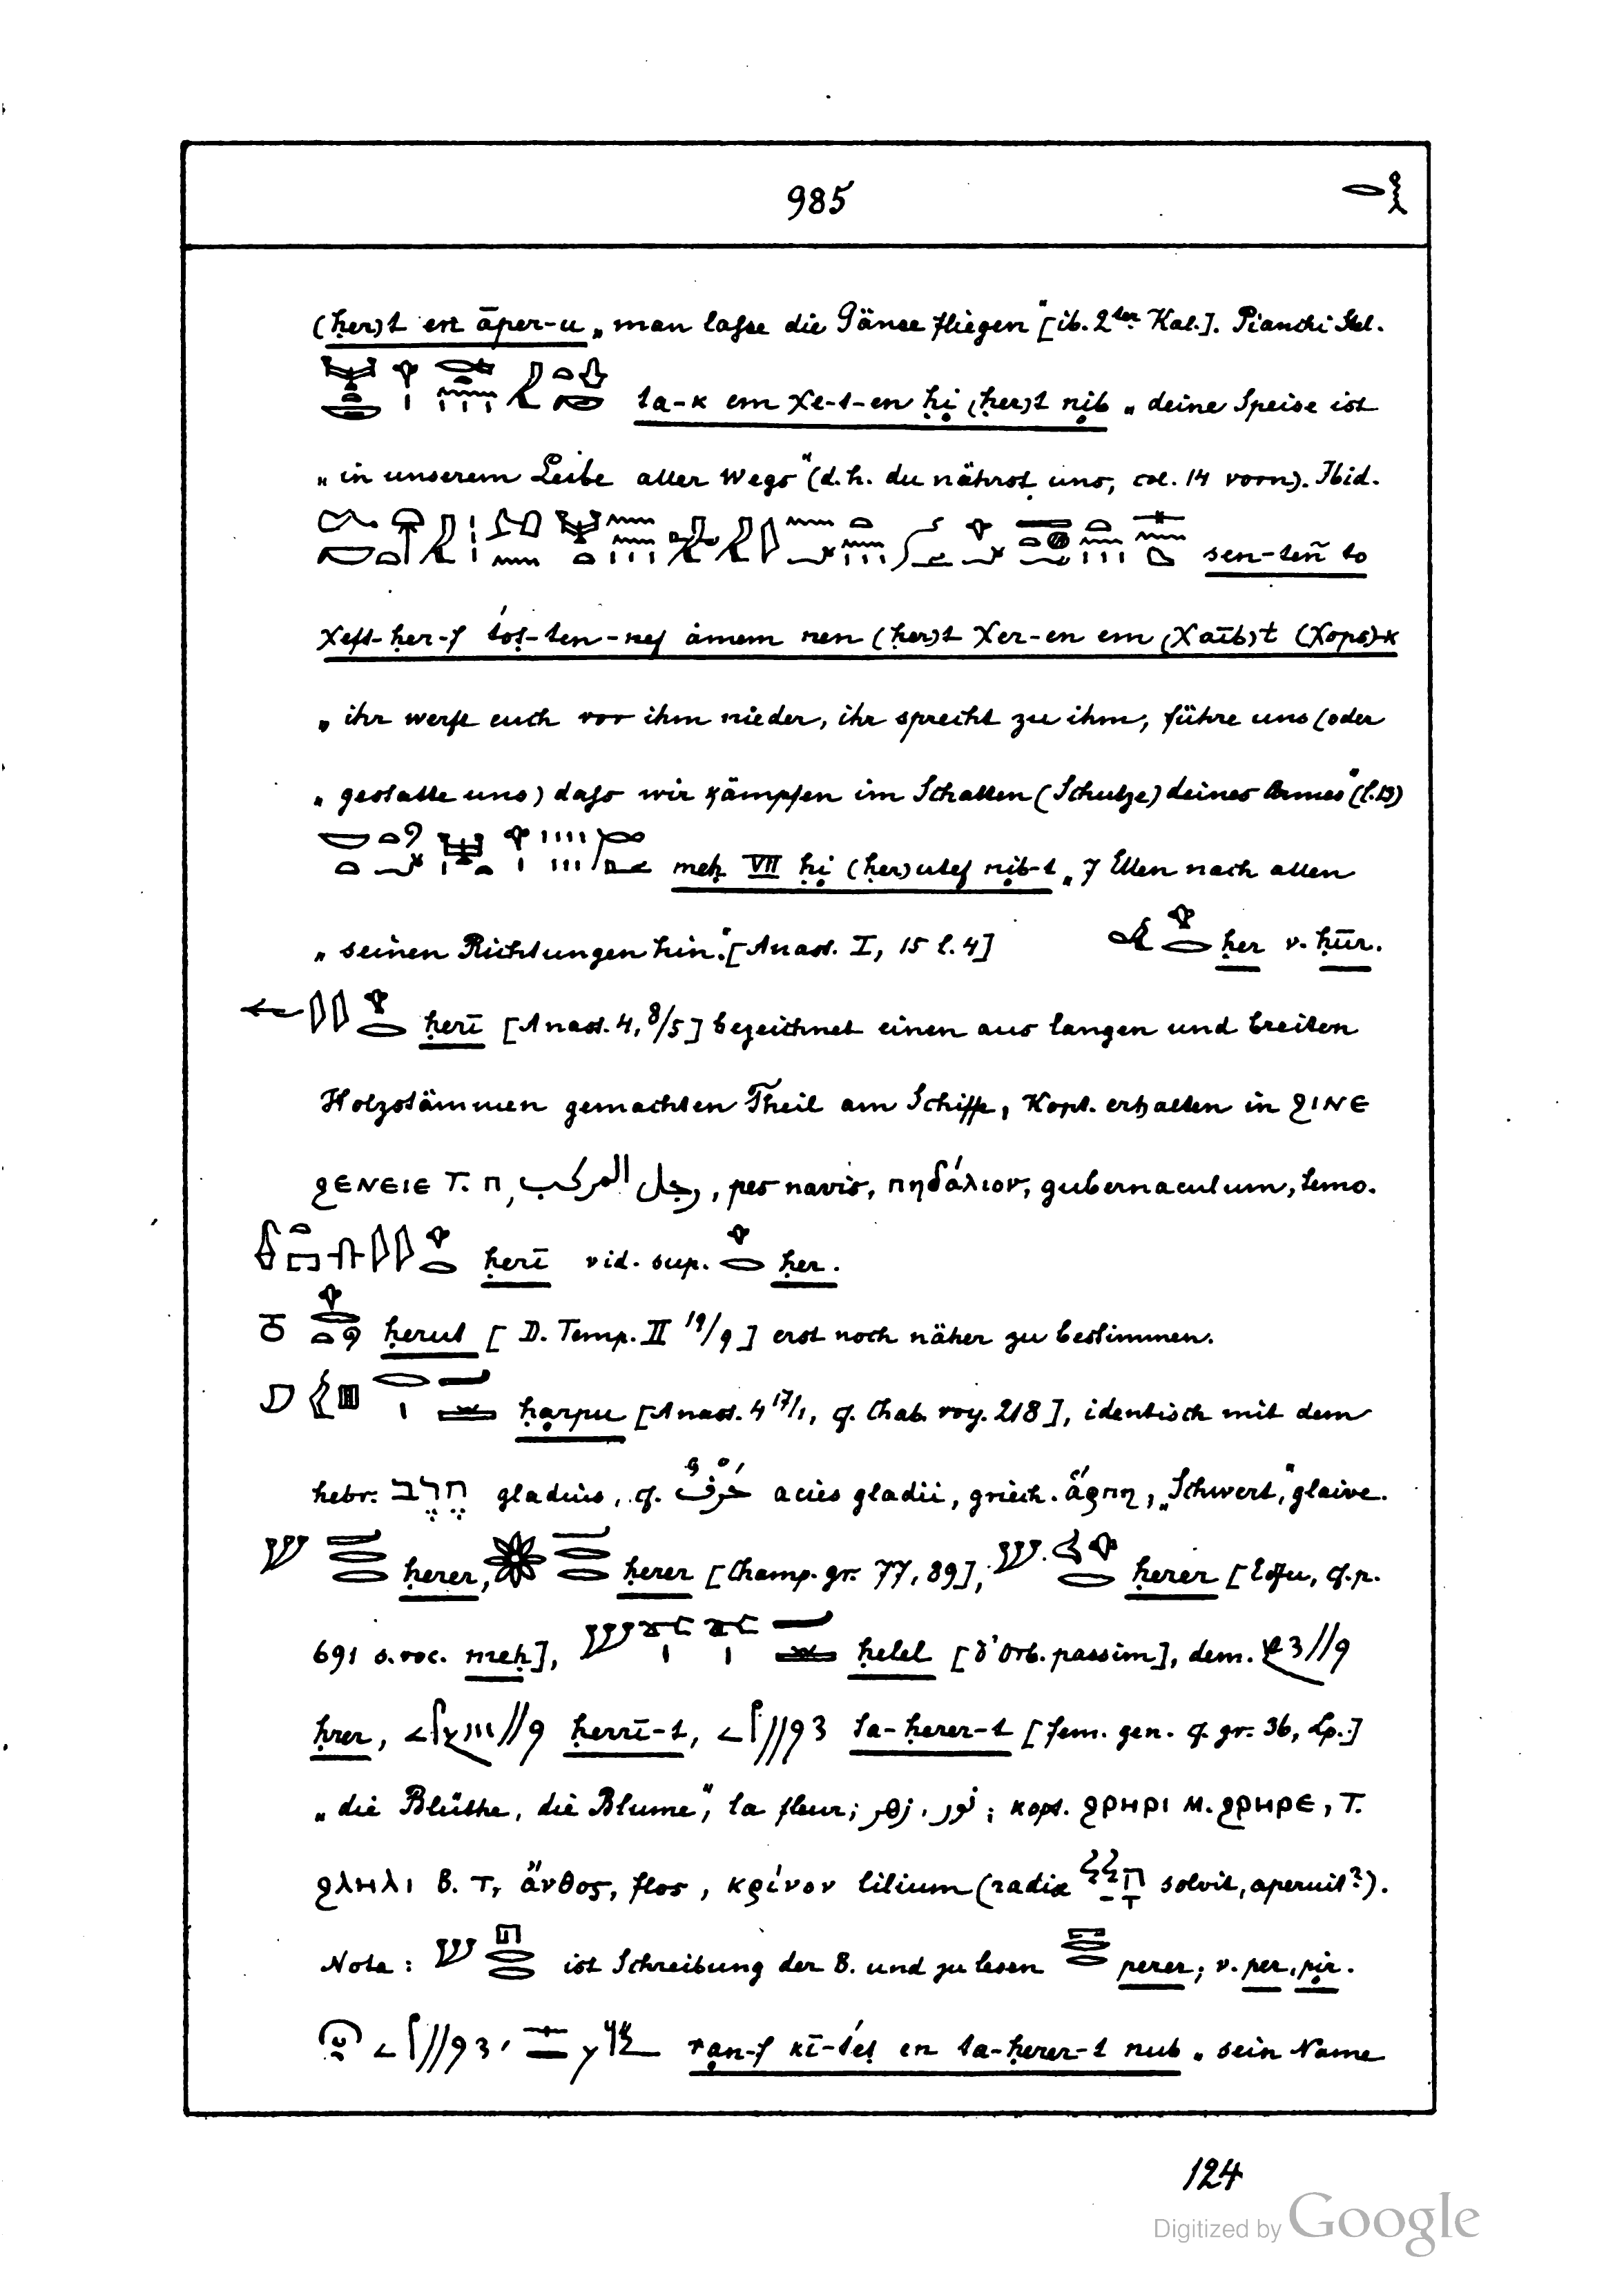 985
(ḥer)t en āper-u „man lasse die Gänse fliegen“ [ib. 2ter Kal.]. Pianchi Stel.
ta-k em χe-t-en ḥi (ḥer)t nib „deine Speise ist
„in unserem Leibe aller Wege“ (d.h. du nährst uns, col. 14 vorn). Ibid.
sen-ten to
χeft-ḥer-f ten-nef ȧmem nen (ḥer)t χer-en em (χaīb)t (χopś)-k
„ihr werft euch vor ihm nieder, ihr sprecht zu ihm, führe uns (oder
„gestatte uns) daß wir kämpfen im Schatten (Schutze) deines Armes“ (l. 13)
meḥ VII ḥi (ḥer)utef nib-t „7 Ellen nach allen
„seinen Richtungen hin“. [Anast. I, 15 l. 4] ḥer v. ḥūr.
ḥerī [Anast. 4, 8/5] bezeichnet einen aus langen und breiten
Holzstämmen gemachten Theil am Schiffe, Kopt. erhalten in ϩΙΝΕ
ϩΕΝΕΙΕ T. π, رجل المركب, pes navis, πηδάλιον, gubernaculum, temo.
ḥerī vid. sup. ḥer.
ḥerut [D. Temp. II 19/9] erst noch näher zu bestimmen.
ḥarpu [Anast. 4 17/1, cf. Chab. voy. 218], identisch mit dem
hebr. חֶרֶב gladius, cf. حَرْفٌ acies gladii, griech. ἅρπη, „Schwert“, glaive.
ḥerer, ḥerer [Champ. gr. 77, 89], ḥerer [Edfu, cf. p.
691 s. voc. meḥ], ḥelel [d'Orb. passim], dem.
ḥrer, ḥerrī-t, ta-ḥerer-t [fem. gen. cf. gr. 36, Lp.]
„die Blüthe, die Blume“, la fleur; زهر, نور; kopt. ϩρΗρι M. ϩρΗρε, T.
ϩλΗλι B. T, ἄνθος, flos, κρίνον lilium (radix חָלַל solvit, aperuit?).
Nota: ist Schreibung der B. und zu lesen perer; v. per, pir.
ran-f kī-teṭ en ta-ḥerer-t nub „sein Name
124
Digitized by Google